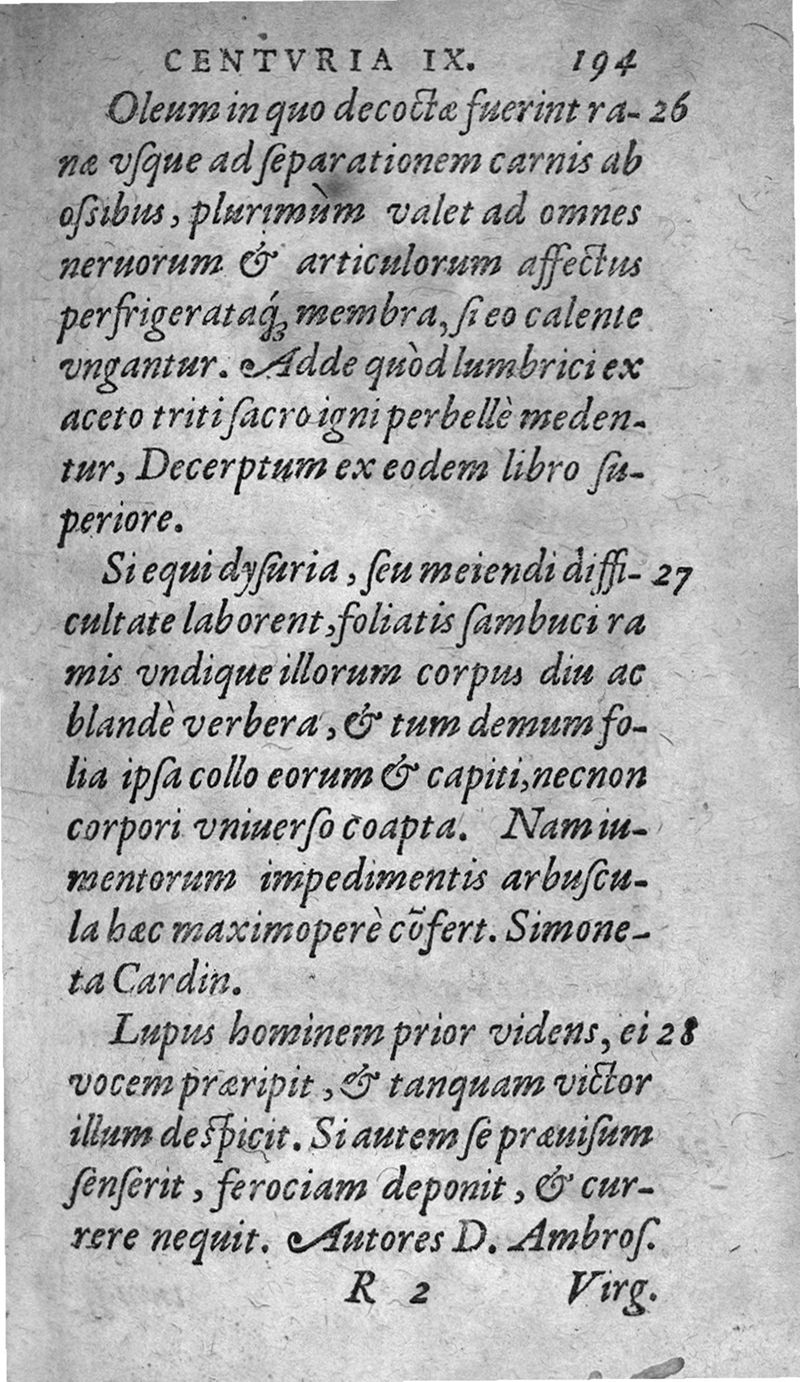 CENTVRIA IX. 194
Oleum in quo decoctæ fuerint ra- 26
næ vſque ad ſeparationem carnis ab
oſsibus, plurimùm valet ad omnes
neruorum & articulorum affectus
perfrigerataq́ꝫ membra, ſi eo calente
vngantur. Adde quòd lumbrici ex
aceto triti ſacro igni perbellè meden-
tur, Decerptum ex eodem libro ſu-
periore.
Si equi dyſuria, ſeu meiendi diffi- 27
cultate laborent, foliatis ſambuci ra
mis vndique illorum corpus diu ac
blandè verbera, & tum demum fo-
lia ipſa collo eorum & capiti, necnon
corpori vniuerſo coapta. Nam iu-
mentorum impedimentis arbuſcu-
la hæc maximoperè cõfert. Simone-
ta Cardin.
Lupus hominem prior videns, ei 28
vocem præripit, & tanquam victor
illum deſpicit. Si autem ſe præuiſum
ſenſerit, ferociam deponit, & cur-
rere nequit. Autores D. Ambroſ.
R 2 Virg.